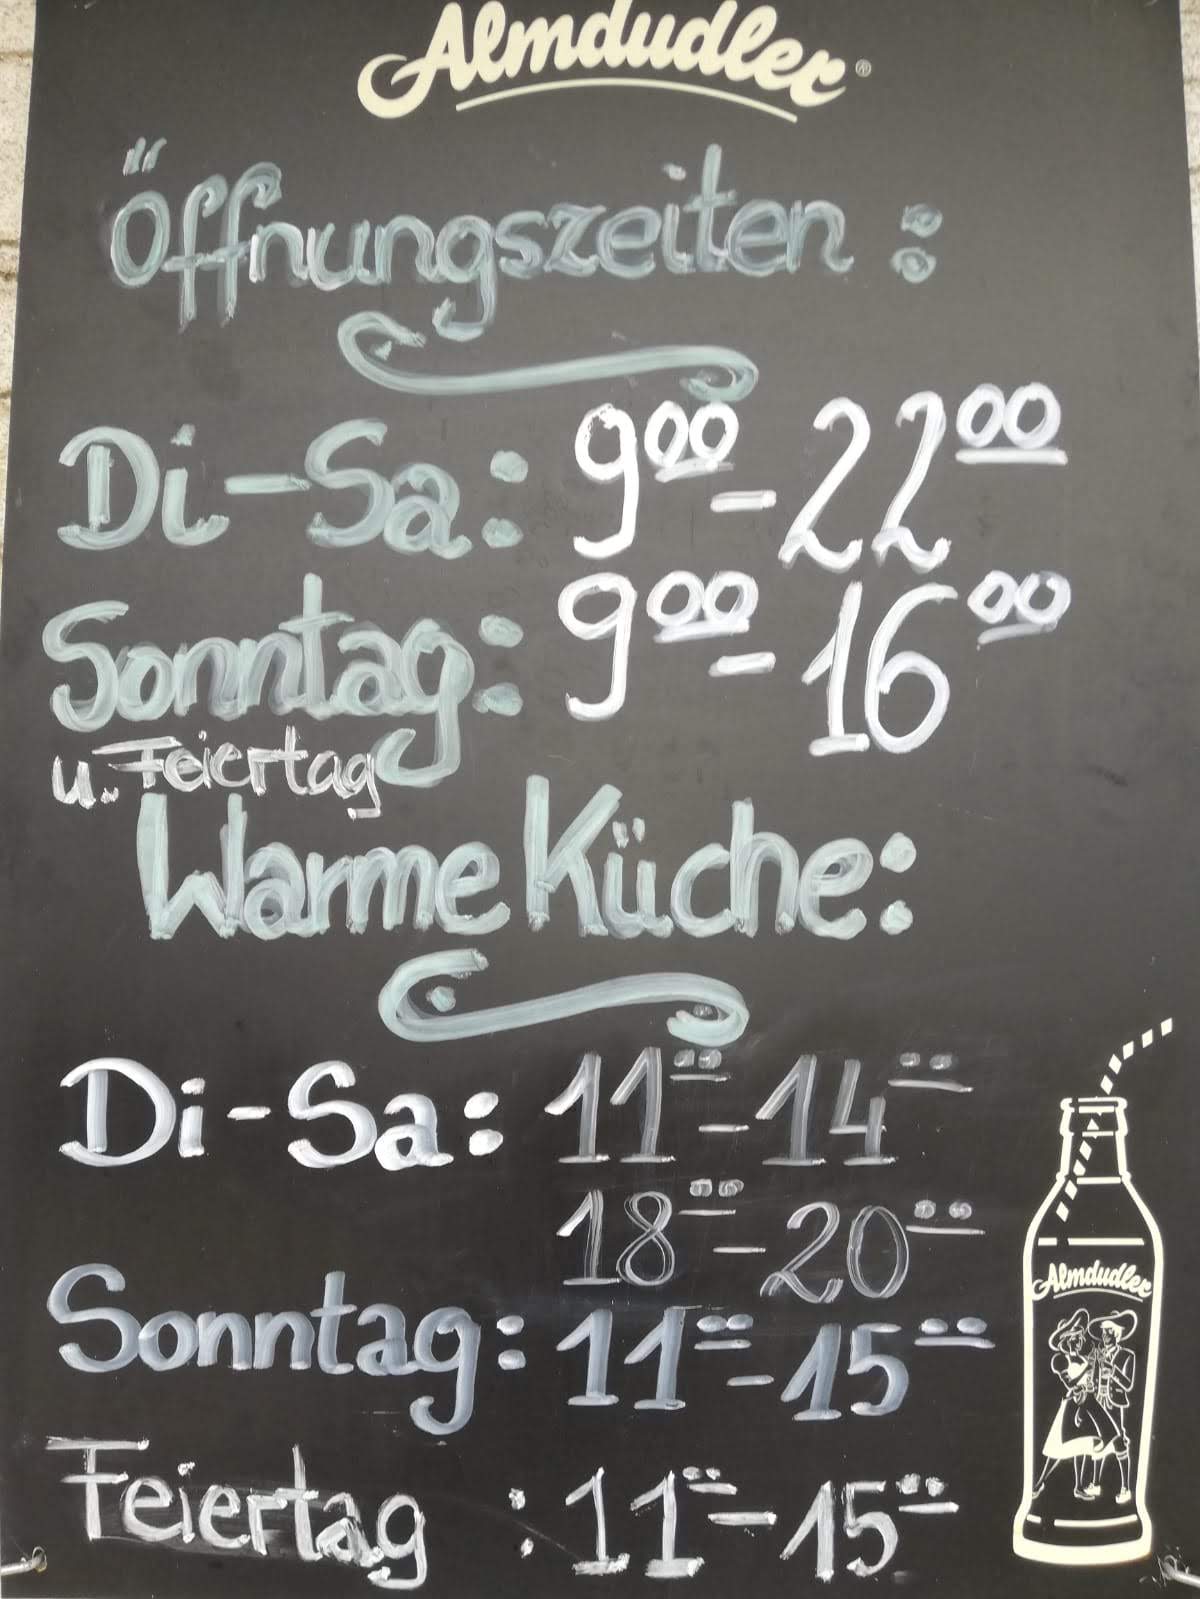 Almdudler®
Öffnungszeiten:
Di-Sa: 9⁰⁰-22⁰⁰
Sonntag: 9⁰⁰-16⁰⁰
u. Feiertag
Warme Küche:
Di-Sa: 11⁰⁰-14⁰⁰
18⁰⁰-20⁰⁰
Sonntag: 11⁰⁰-15⁰⁰
Feiertag: 11⁰⁰-15⁰⁰
Almdudler